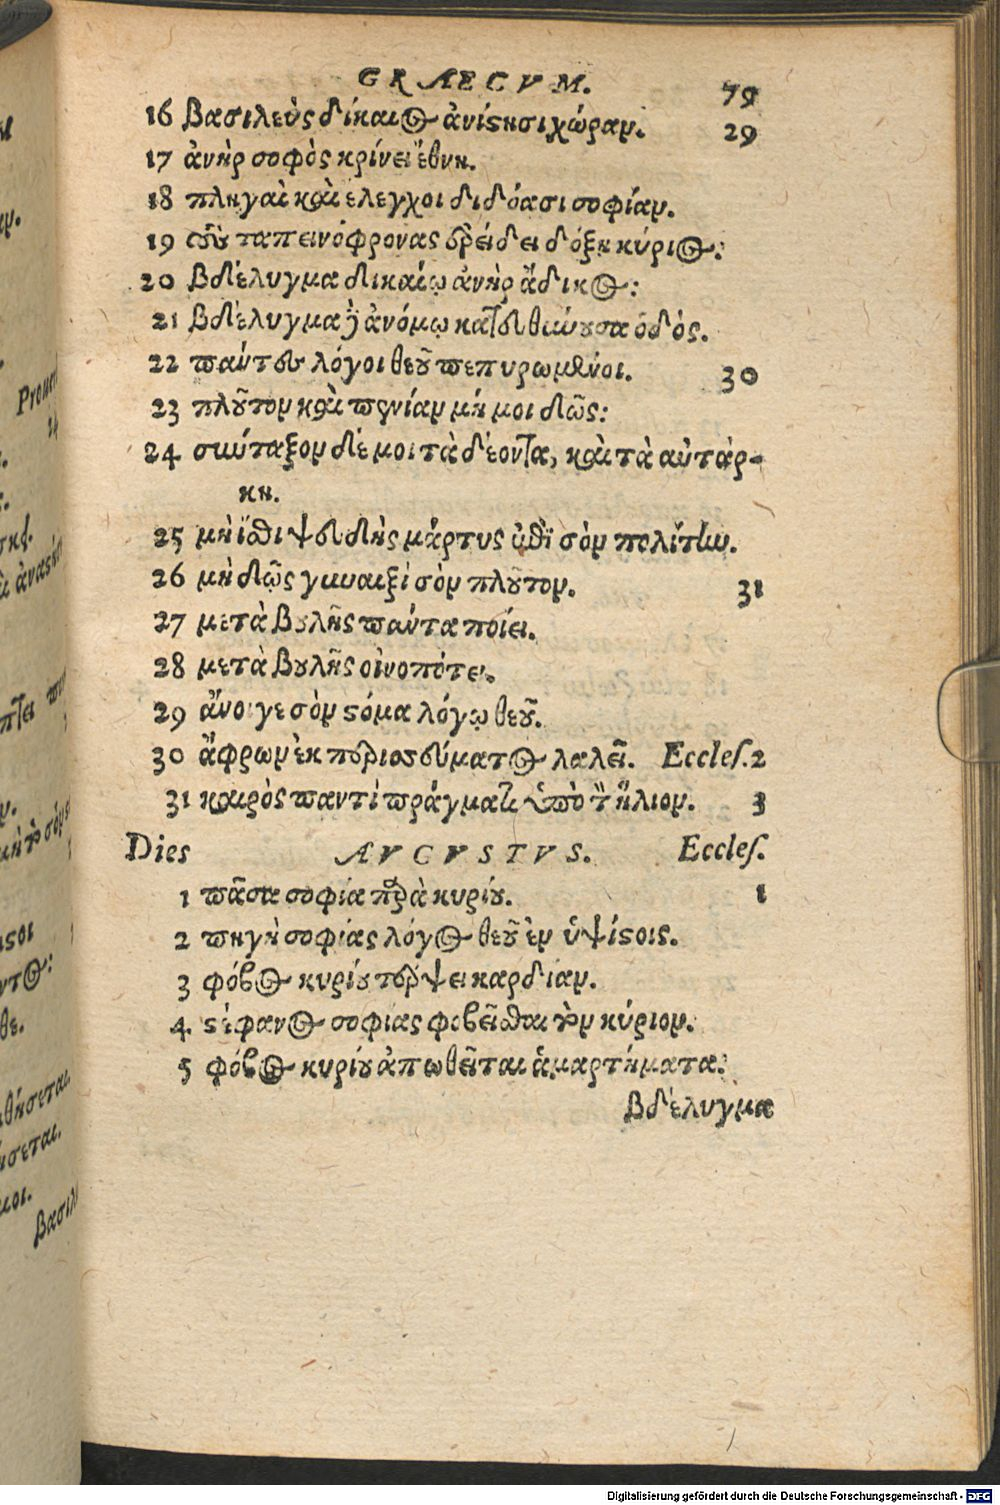 GRAECVM. 79
16 βασιλεὺς δίκαιος ἀνίστησι χώραν. 29
17 ἀνὴρ σοφὸς κρίνει ἔθνη.
18 πληγαὶ καὶ ελεγχοι διδόασι σοφίαν.
19 τοὺς ταπεινόφρονας ἐρείδει δόξῃ κύριος:
20 βδέλυγμα δικαίῳ ἀνὴρ ἄδικος:
21 βδέλυγμα ἢ ἀνόμῳ κατευθιώουσα ὁδὸς.
22 παύτες λόγοι θεοῦ πεπυρωμένοι. 30
23 πλοῦτον καὶ πενίαν μή μοι δῶς:
24 σιώταξον δέ μοι τὰ δέοντα, καὶ τὰ αὐτάρ-
κη.
25 μὴ ἴσθι ψευδὴς μάρτυς ἐπὶ σὸν πολίτlω.
26 μὴ δῷς γιωαιξὶ σὸν πλοῦτον. 31
27 μετὰ βουλῆς παύτα ποίει.
28 μετὰ βουλῆς οἰνοπότει.
29 ἄνοιγε σὸν στόμα λόγῳ θεοῦ.
30 ἄφρων ἐκ περισσεύματος λαλεῖ. Eccles. 2
31 καιρὸς παντὶ πράγματι ὑπὸ τὸν ἥλιον. 3
Dies AVGVSTVS. Eccles.
1 πᾶσα σοφία παρὰ κυρίου. 1
2 πηγὴ σοφίας λόγος θεοῦ ἐν ὑψίστοις.
3 φόβος κυρίου τέρψει καρδίαν.
4 στέφανος σοφιας φοβεῖσθαι τὸν κύριον.
5 φόβος κυρίου ἀπωθεῖται ἁμαρτήματα:
βδέλυγμα
Prouer
24
βασιλ
Digitalisierung gefördert durch die Deutsche Forschungsgemeinschaft - DFG